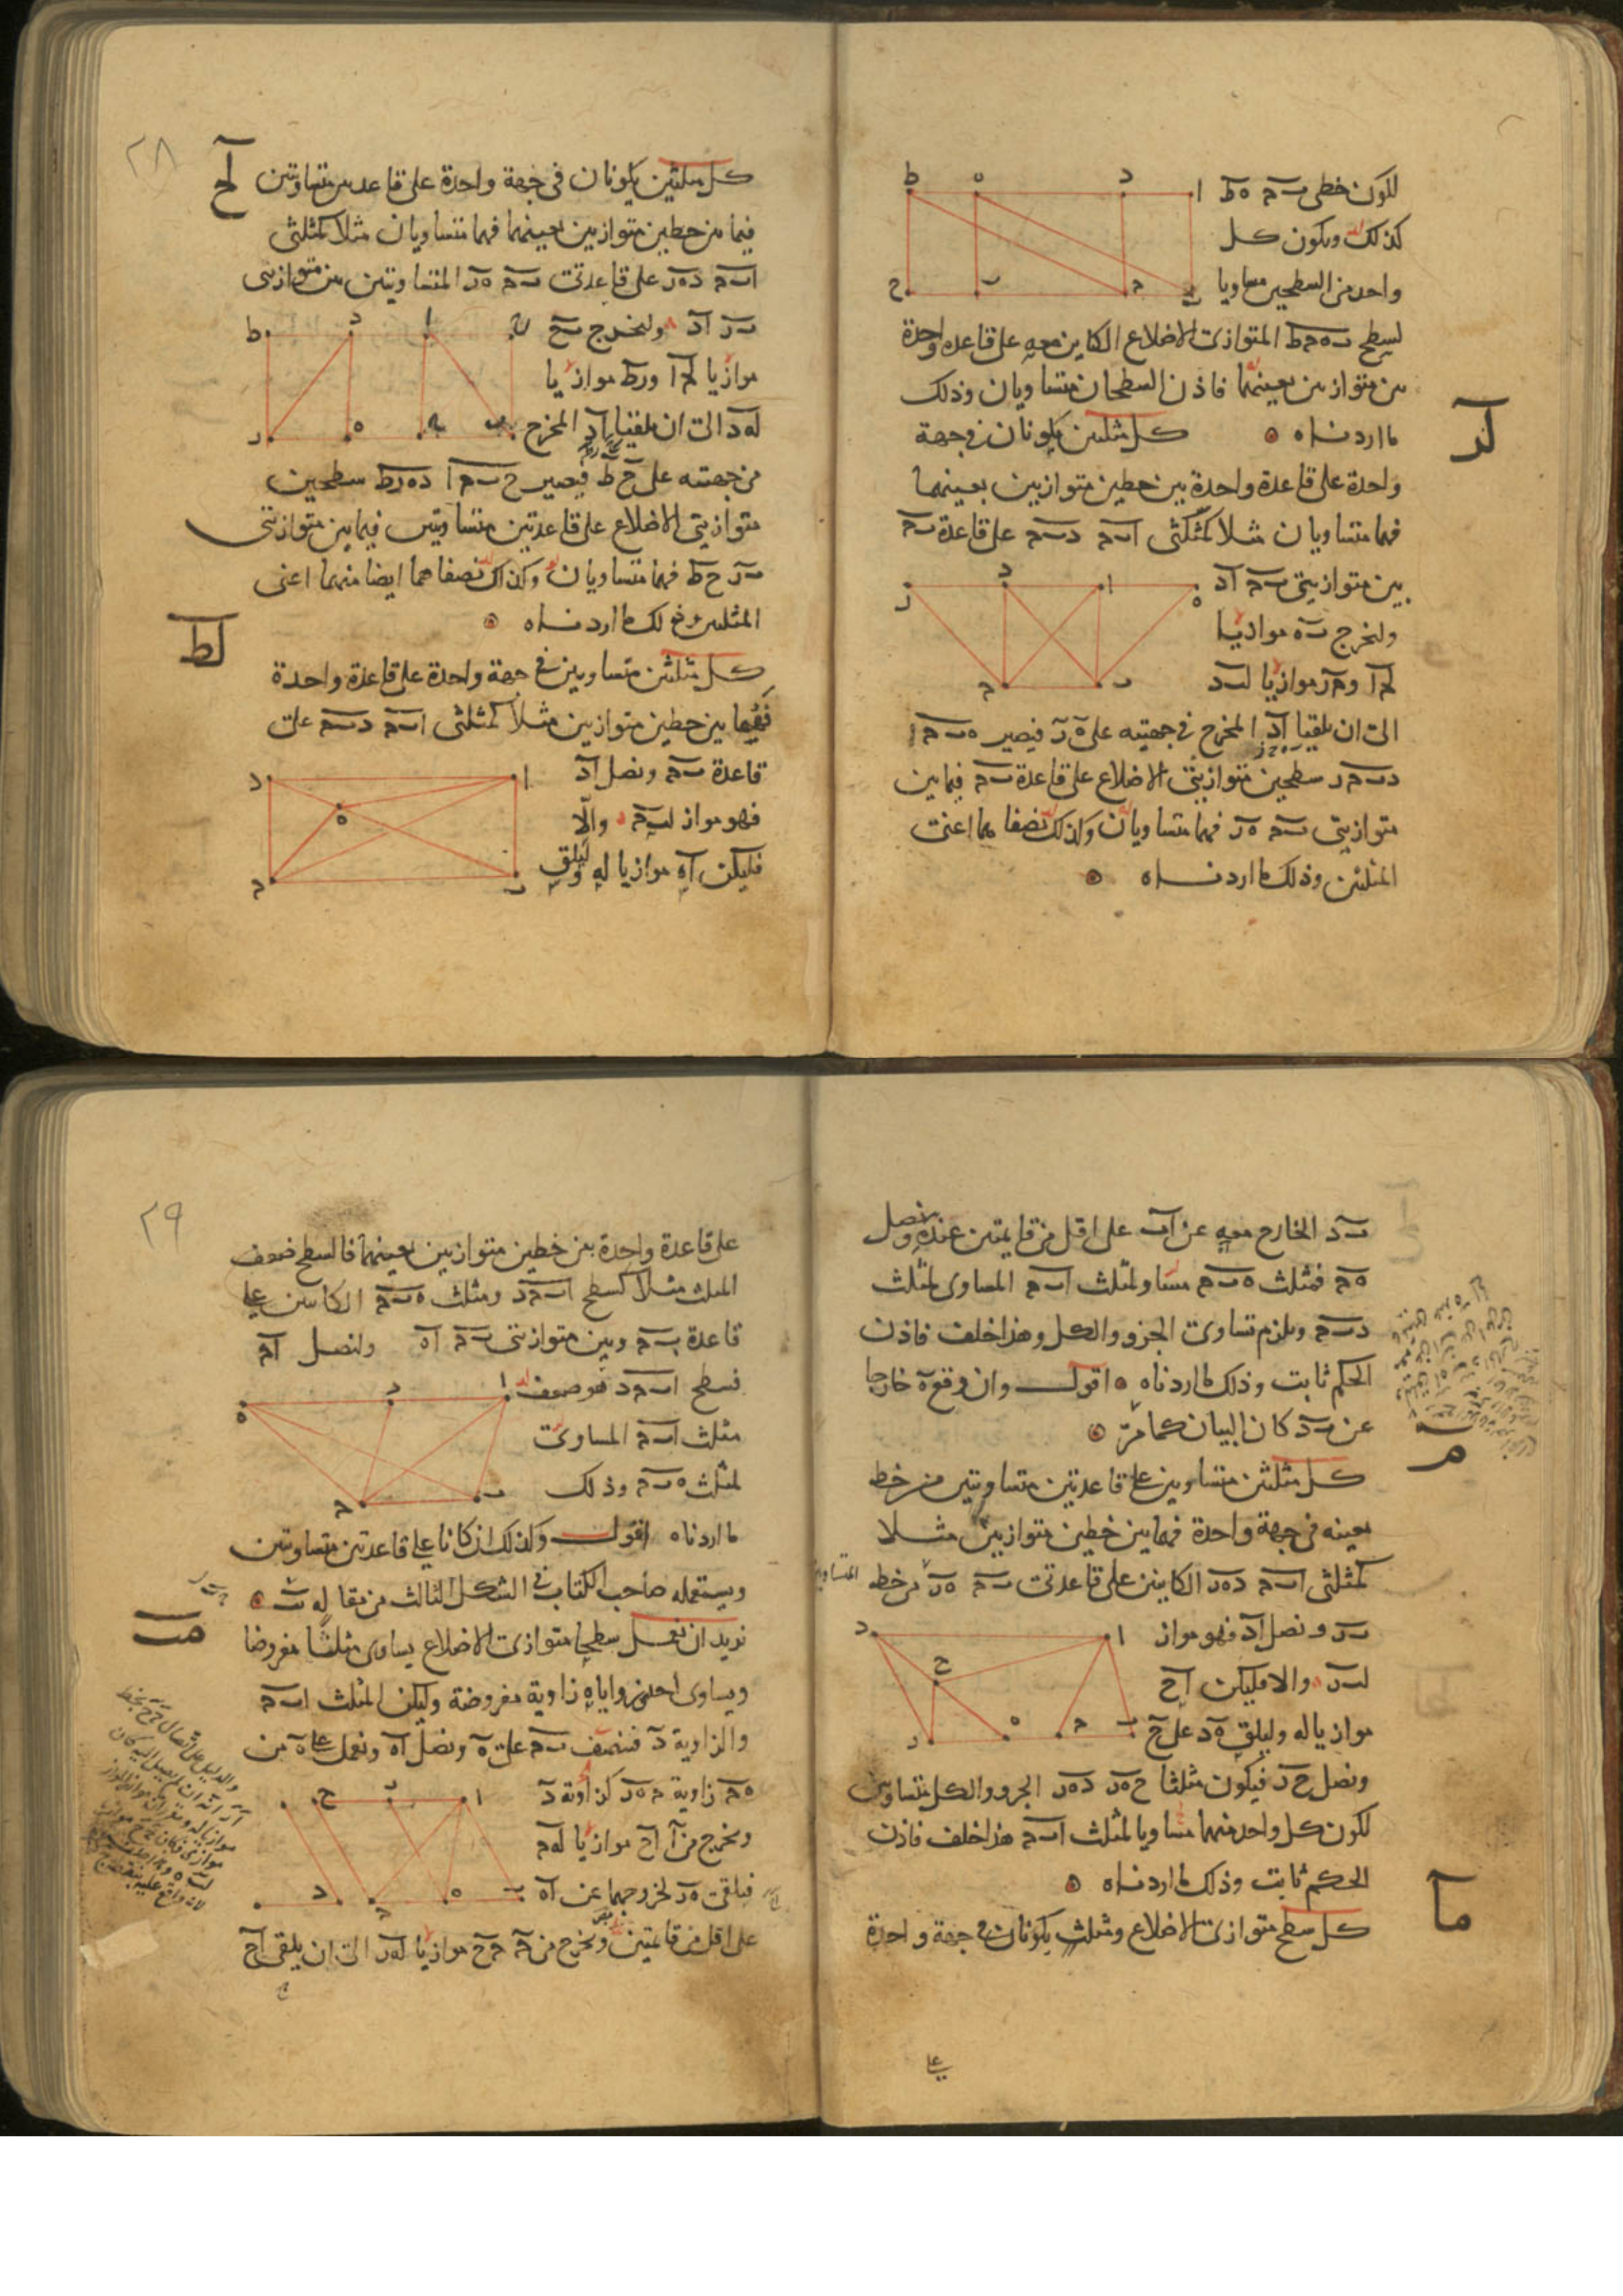 لكون خطى بح هط
كذلك ويكون كل
واحد من السطحين مساويا
لسطح ب ه ح ط المتوازى الاضلاع الكاين معه على قاعدة واحدة
بين متوازيين بعينهما فاذن السطحان متساويان وذلك
ما اردناه
لز
كل مثلثين يكونان فى جهة
واحدة على قاعدة واحدة بين خطين متوازيين بعينهما
فهما متساويان مثلا كمثلثى ابح دبح على قاعدة بح
بين متوازيتى بح اد
ولنخرج به موازيا
لحا وحر موازيا لبد
الى ان يلقيا اد المخرج فى جهتيه على ه ر فيصير هبحا
دبحر سطحين متوازيتى الاضلاع على قاعدة بح فيما بين
متوازيتى بح هر فهما متساويان وكذلك نصفاهما اعنى
المثلثين وذلك ما اردناه
٢٨
لح
كل مثلثين يكونان فى جهة واحدة على قاعدتين متساويتين
فيما بين خطين متوازيين بعينهما فهما متساويان مثلا كمثلثى
ابح دهر على قاعدتى بح هر المتساويتين بين متوازيتى
بر اد ولنخرج بح
موازيا لحا ورط موازيا
له د الى ان يلقيا اد المخرج
من جهتيه على ح ط فيصير ح ب ح ا ده رط سطحين
متوازيتى الاضلاع على قاعدتين متساويتين فيما بين متوازيتى
بر ح ط فهما متساويان وكذلك نصفاهما ايضا منهما اعنى
المثلثين وذلك ما اردناه
لط
كل مثلثين متساويين فى جهة واحدة على قاعدة واحدة
فهما بين خطين متوازيين مثلا كمثلثى ابح دبح على
قاعدة بح ونصل اد
فهو مواز لبح والّا
فليكن اه موازيا له وليلق
بد الخارج معه عن اب على اقل من قايمتين عند ه ونصل
هح فمثلث هبح مساو لمثلث ابح المساوى لمثلث
دبح ويلزم تساوى الجزو والكل وهذا خلف فاذن
الحكم ثابت وذلك ما اردناه اقول وان وقع ه خارجا
عن بد كان البيان كما مرّ
م
كل مثلثين متساويين على قاعدتين متساويتين من خط
بعينه فى جهة واحدة فهما بين خطين متوازيين مثلا
كمثلثى ابح دهر الكاينين على قاعدتى بح هر من خط
المتساويتين
بر ونصل اد فهو مواز
لبر والا فليكن اح
موازيا له وليلق هد على ح
ونصل ح ر فيكون مثلثا ح ه ر ده ر الجزو والكل متساويين
لكون كل واحد منهما مساويا لمثلث ابح هذا خلف فاذن
الحكم ثابت وذلك ما اردناه
ما
كل سطح متوازى الاضلاع ومثلث يكونان فى جهة واحدة
٢٩
على قاعدة واحدة بين خطين متوازيين بعينهما فالسطح ضعف
المثلث مثلا كسطح ابحد ومثلث هبح الكاينين على
قاعدة بح وبين متوازيتى بح اه ولنصل اح
فسطح ابحد هو ضعف
مثلث ابح المساوى
لمثلث هبح وذلك
ما اردناه اقول وكذلك ان كانا على قاعدتين متساويتين
ويستعمله صاحب الكتاب فى الشكل الثالث من مقاله
مب
نريد ان نعمل سطحا متوازى الاضلاع يساوى مثلثا مفروضا
ويساوى احدى زواياه زاوية مفروضة وليكن المثلث ابح
والزاوية د فننصف بح على ه ونصل اه ونعمل على ه من
هح زاوية حهر كزاوية د
ونخرج من ا اح موازيا لهح
فيلقى هر لخروجهما عن اه
على اقل من قايمتين ونخرج من ح حح موازيا لهر الى ان يلقى اح